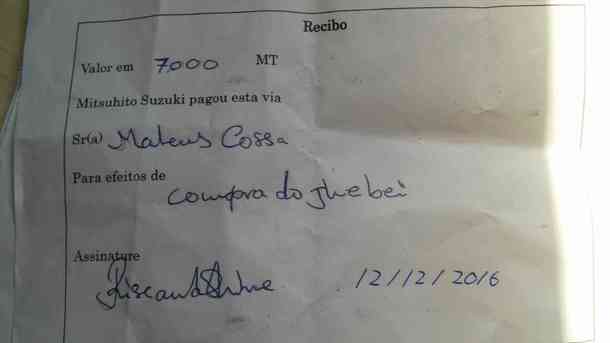 Recibo
Valor em 7000 MT
Mitsuhito Suzuki pagou esta via
Sr(a) Mateus Cossa
Para efeitos de
compra do jhebei
Assinature
12/12/2016